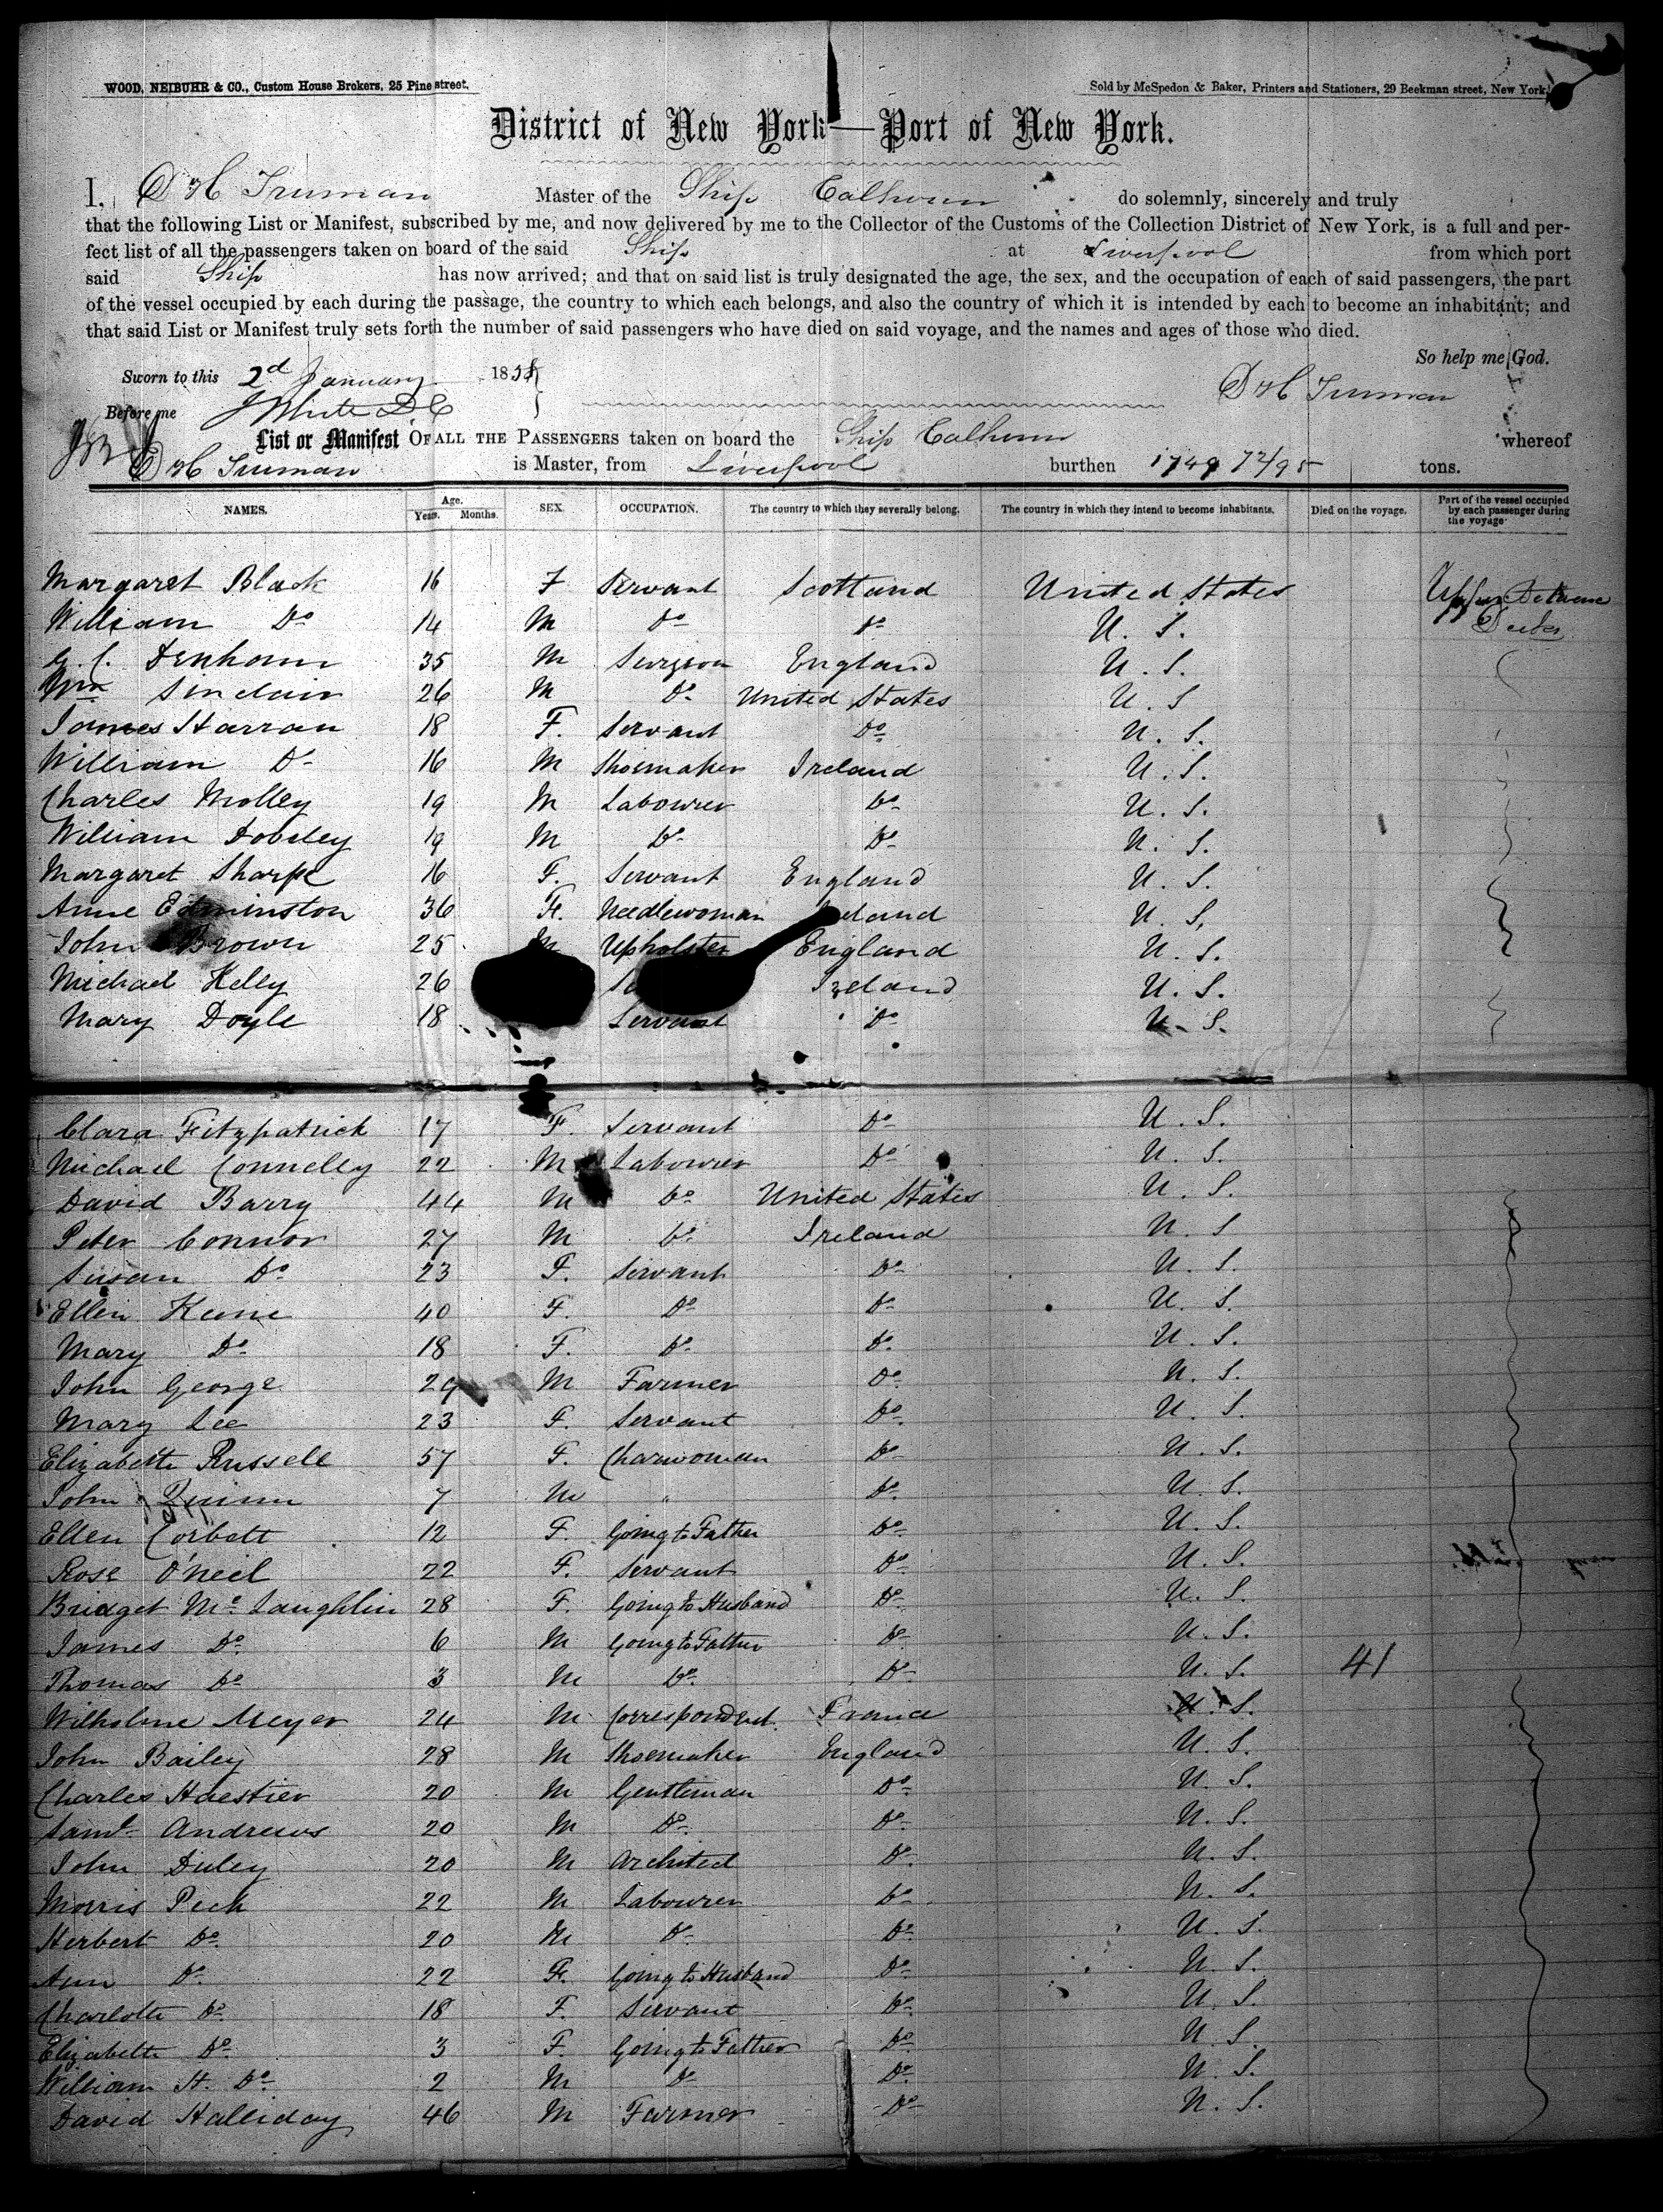 WOOD, NEIBUHR & CO., Custom House Brokers, 25 Pine street.
Sold by McSpedon & Baker, Printers and Stationers, 29 Beekman street, New York.
District of New York—Port of New York.
I, D H Truman Master of the Ship Calhoun do solemnly, sincerely and truly
that the following List or Manifest, subscribed by me, and now delivered by me to the Collector of the Customs of the Collection District of New York, is a full and per-
fect list of all the passengers taken on board of the said Ship at Liverpool from which port
said Ship has now arrived; and that on said list is truly designated the age, the sex, and the occupation of each of said passengers, the part
of the vessel occupied by each during the passage, the country to which each belongs, and also the country of which it is intended by each to become an inhabitant; and
that said List or Manifest truly sets forth the number of said passengers who have died on said voyage, and the names and ages of those who died.
So help me God.
Sworn to this 2d January 185
D H Truman
Before me J White D C
List or Manifest OF ALL THE PASSENGERS taken on board the Ship Calhoun whereof
D H Truman is Master, from Liverpool burthen 1749 72/95 tons.
NAMES. Age. Years. Months. SEX. OCCUPATION. The country to which they severally belong. The country in which they intend to become inhabitants. Died on the voyage. Part of the vessel occupied by each passenger during the voyage
Margaret Black 16 F Servant Scotland United States Upper Between
William Do 14 M Do Do U. S. Decks
G. C. Denham 35 M Surgeon England U. S.
Wm Sinclair 26 M Do United States U. S
James Harran 18 F. Servant Do U. S.
William Do 16 M Shoemaker Ireland U. S.
Charles Molley 19 M Labourer Do U. S.
William Dobeley 19 M Do Do U. S.
Margaret Sharpe 16 F. Servant England U. S.
Anne Edminston 36 F. Needlewoman Ireland U. S.
John Brown 25 M Upholster England U. S.
Michael Kelly 26 Ireland U. S.
Mary Doyle 18 Servant Do U. S.
Clara Fitzpatrick 17 F. Servant Do U. S.
Michael Connelly 22 M Labourer Do U. S.
David Barry 44 M Do United States U. S.
Peter Connor 27 M Do Ireland U. S
Susan Do 23 F. Servant Do U. S.
Ellen Keene 40 F. Do Do U. S.
Mary Do 18 F. Do Do U. S.
John George 29 M Farmer Do U. S.
Mary Lee 23 F. Servant Do U. S.
Elizabeth Russell 57 F. Charwoman Do U. S.
John Quinn 7 M " Do U. S.
Ellen Corbett 12 F. Going to Father Do U. S.
Rose O'Neil 22 F. Servant Do U. S.
Bridget Mc Laughlin 28 F. Going to Husband Do U. S.
James Do 6 M Going to Father Do U. S.
Thomas Do 3 M Do Do U. S. 41
Wilholme Meyer 24 M Correspondent France U. S.
John Bailey 28 M Shoemaker England U. S.
Charles Haestier 20 M Gentleman Do U. S.
Saml Andrews 20 M Do Do U. S.
John Duley 20 M Architect Do U. S.
Morris Peck 22 M Labourer Do U. S.
Herbert Do 20 M Do Do U. S.
Ann Do 22 F. Going to Husband Do U. S.
Charlotte Do 18 F. Servant Do U. S.
Elizabeth Do 3 F. Going to Father Do U. S.
William H. Do 2 M Do Do U. S.
David Halliday 46 M Farmer Do U. S.